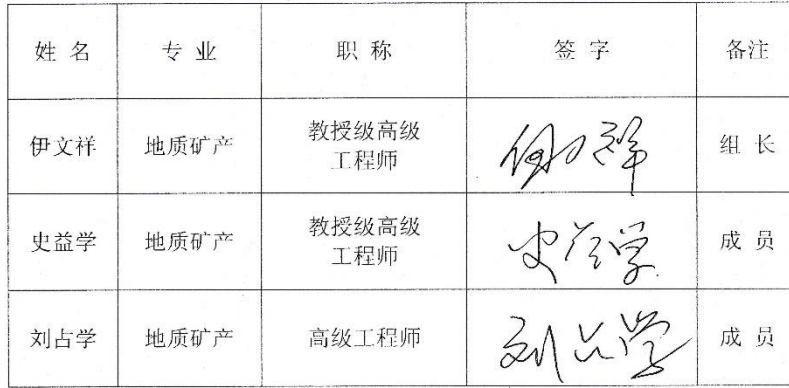 姓 名 专 业 职 称 签 字 备注
伊文祥 地质矿产 教授级高级 伊文祥 组 长
工程师
史益学 地质矿产 教授级高级 史益学 成 员
工程师
刘占学 地质矿产 高级工程师 刘占学 成 员